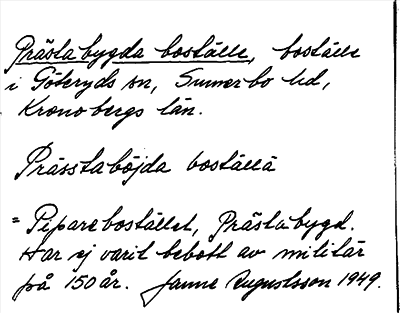 Prästabygda boställe, boställe
i Göteryds sn, Sunnerbo hd,
Kronobergs län.
Prässtaböjda boställä
= Pipareboställlet, Prästabygd.
Har ej varit bebott av militär
på 150 år. Janne Augustsson 1949.